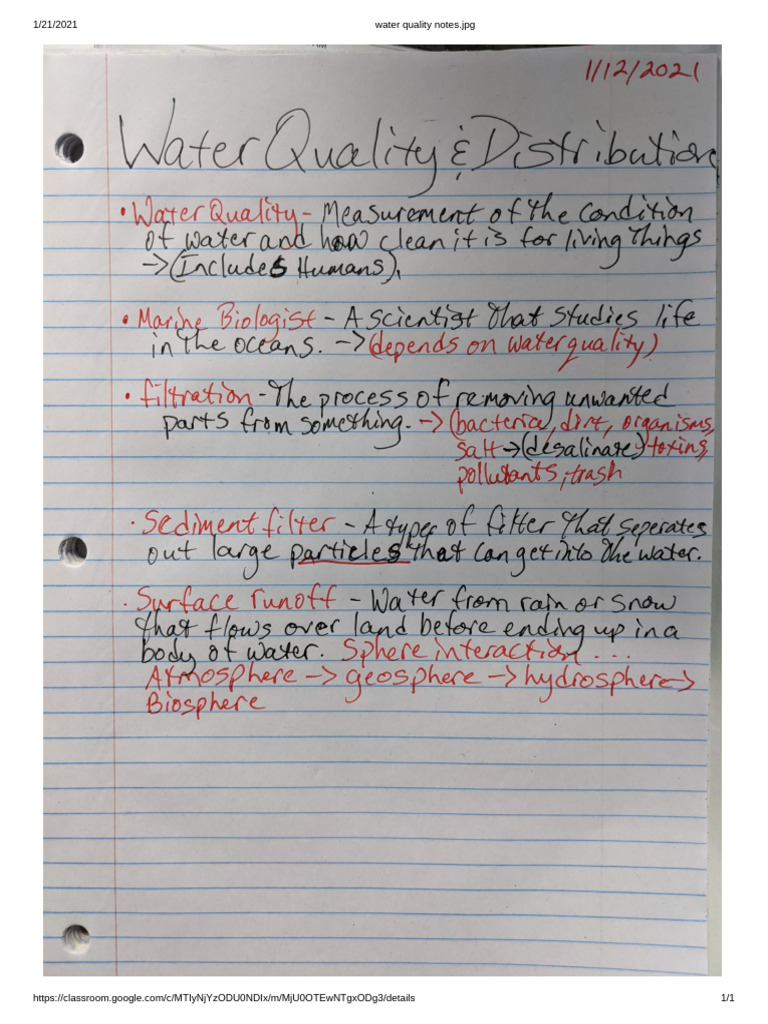 1/21/2021 water quality notes.jpg
1/12/2021
Water Quality & Distribution
• Water Quality - Measurement of the condition
of water and how clean it is for living things
-> (Includes Humans).
• Marine Biologist - A scientist that studies life
in the oceans. -> (depends on water quality)
• filtration - The process of removing unwanted
parts from something. -> (bacteria, dirt, organisms,
salt -> (desalinate) toxins,
pollutants, trash
• Sediment filter - A type of filter that seperates
out large particles that can get into the water.
• Surface runoff - Water from rain or snow
that flows over land before ending up in a
body of water. Sphere interaction...
Atmosphere -> geosphere -> hydrosphere ->
Biosphere
https://classroom.google.com/c/MTIyNjYzODU0NDIx/m/MjU0OTEwNTgxODg3/details 1/1